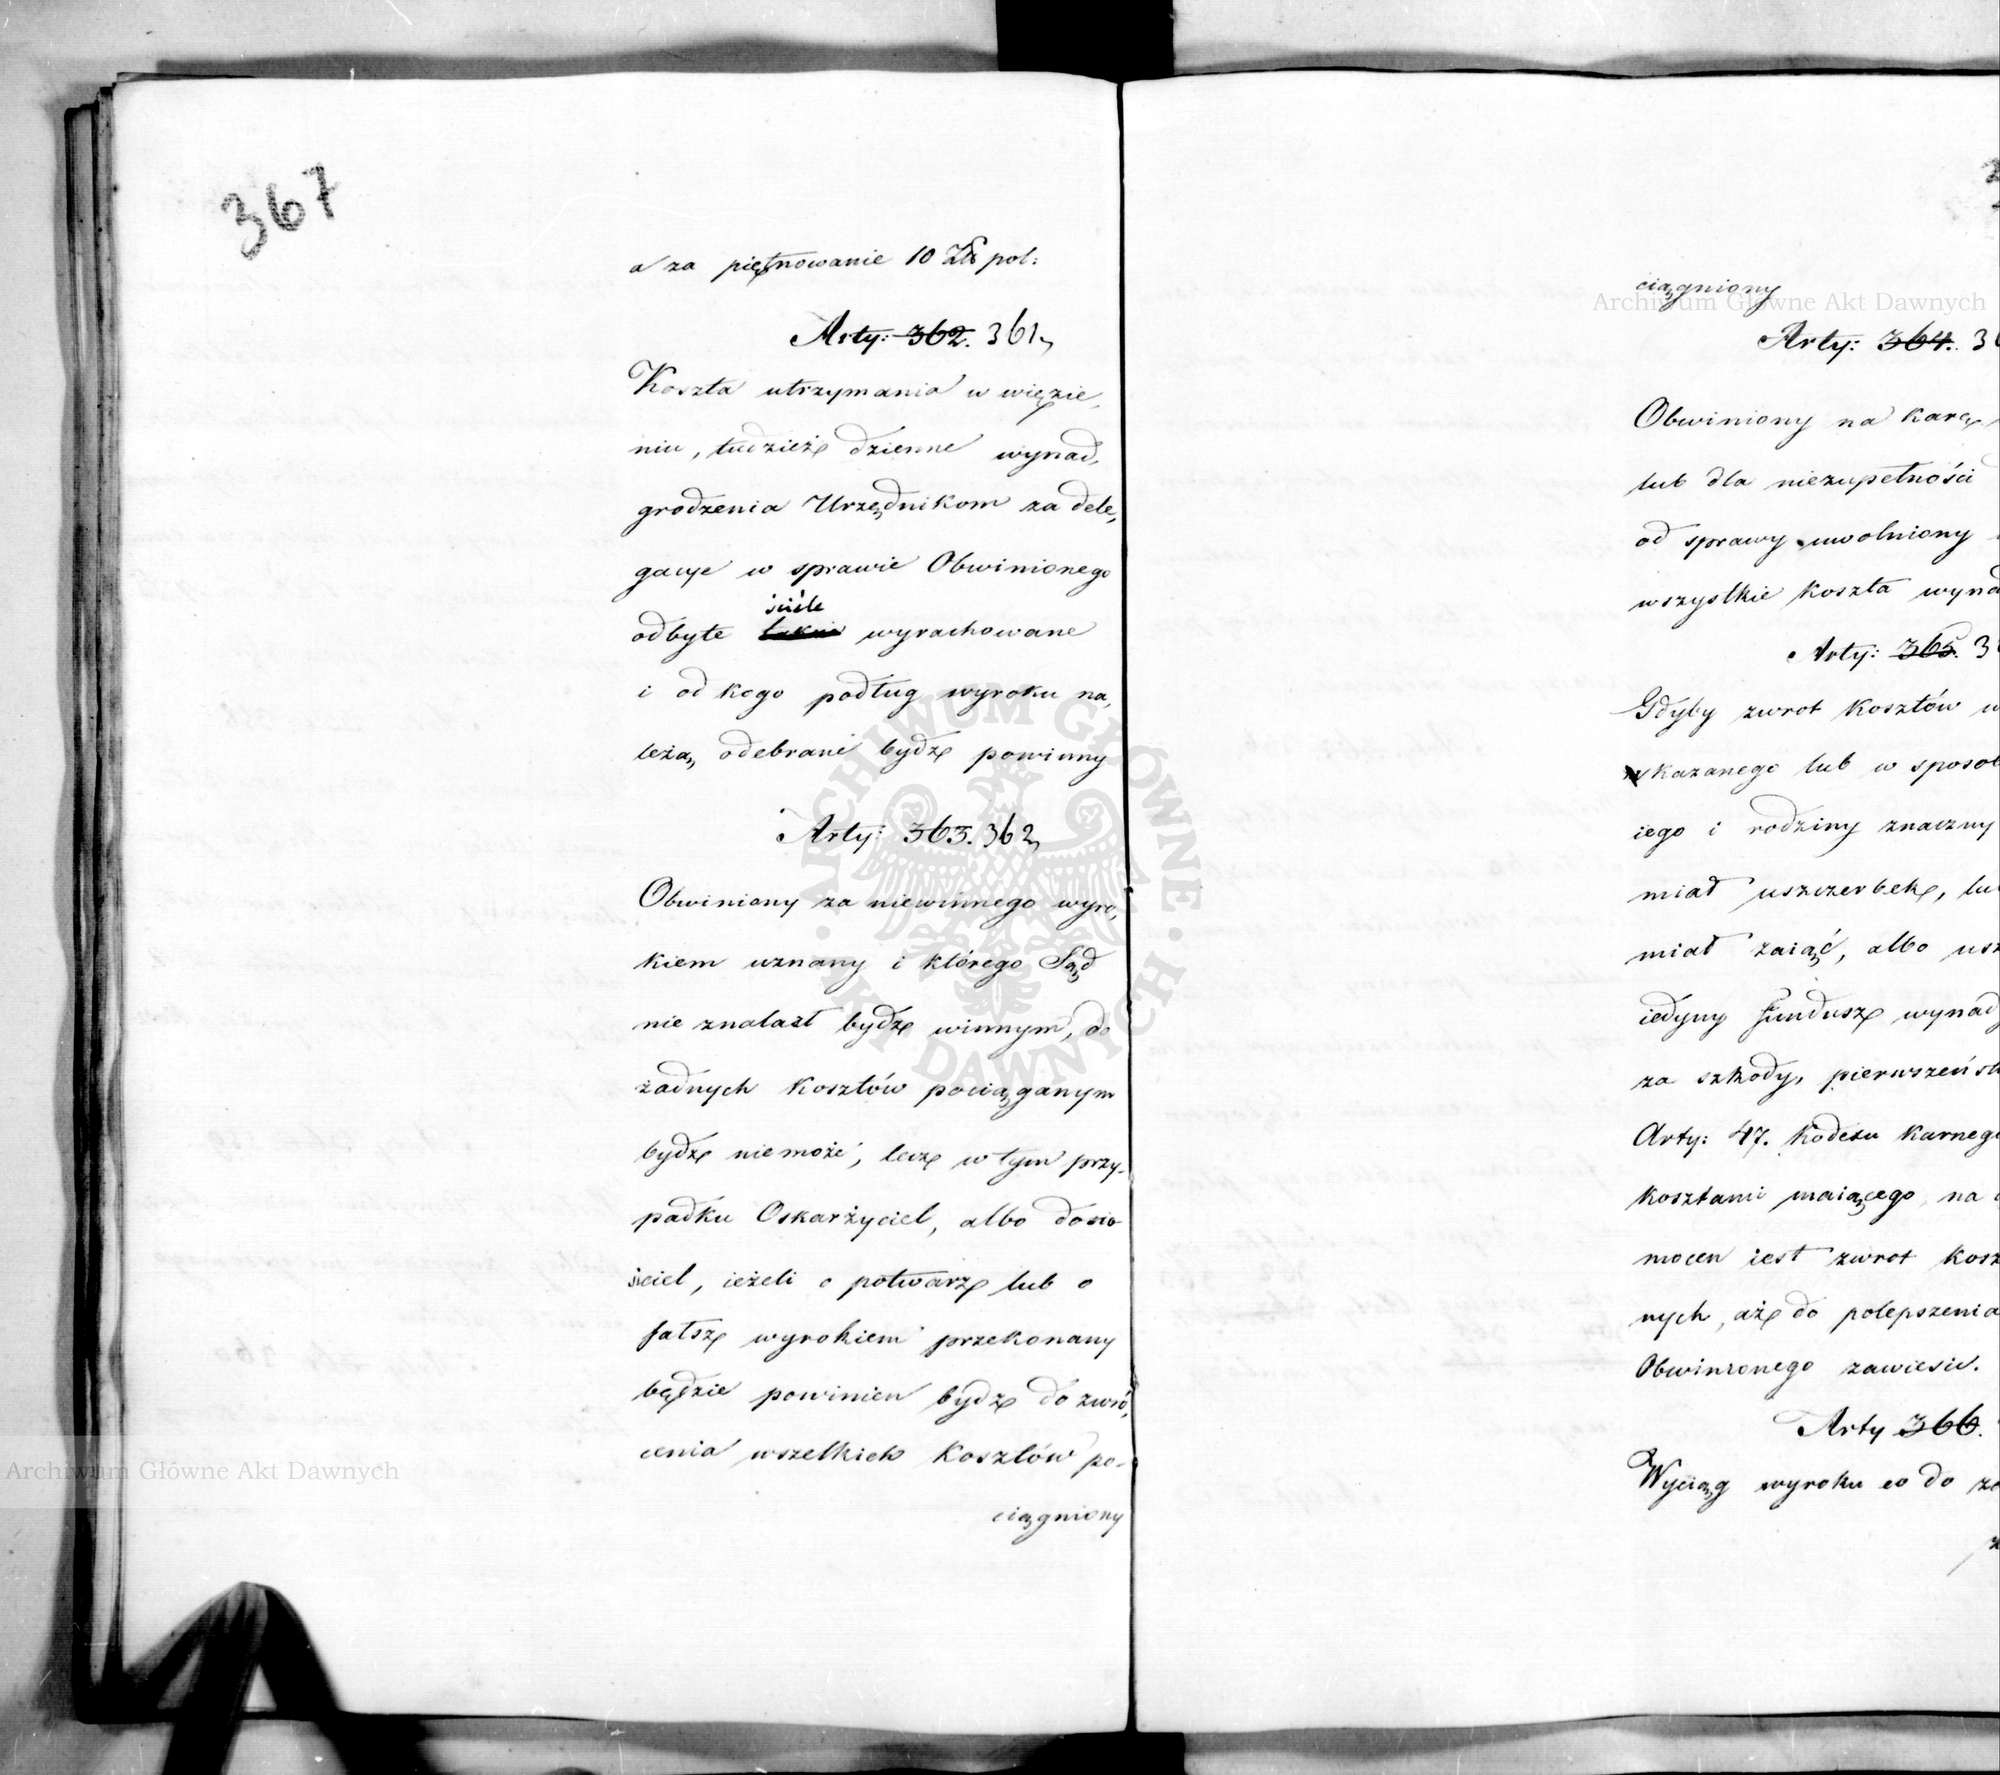 367
a za piętnowanie 10 Złł pol:
Arty: 362. 361,
Koszta utrzymania w więzie,
niu, tudzież dzienne wynad,
grodzenia Urzędnikom za dele,
gacye w sprawie Obwinionego
ściśle
odbyte wyrachowane
i od kogo podług wyroku na,
leżą, odebrane bydź powinny
Arty: 363. 362,
Obwiniony za niewinnego wyro,
kiem uznany i którego Sąd
nie znalazł bydź winnym, do
żadnych Kosztów pociąganym
bydź niemoże, lecz w tym przy-
padku Oskarżyciel, albo donio
siciel, ieżeli o potwarz lub o
fałsz wyrokiem przekonany
będzie powinien bydź do zwró,
cenia wszelkich Kosztów po-
ciągniony
ciągniony
Arty: 364. 3
Obwiniony na karę
lub dla niezupełności
od sprawy uwolniony
wszystkie koszta wynad
Arty: 365. 3
Gdyby zwrot Kosztów w
skazanego lub w sposob
iego i rodziny znaczny
miał uszczerbek, lub
miał zaiąć, albo usz
iedyny fundusz wynad
za szkody, pierwszeńst
Arty: 47. Kodexu Karnego
kosztami maiącego, na
mocen iest zwrot kosz
nych, aż do polepszenia
Obwinionego zawiesić.
Arty 366.
Wyciąg wyroku co do za
Archiwum Główne Akt Dawnych
Archiwum Główne Akt Dawnych
ARCHIWUM GŁÓWNE AKT DAWNYCH